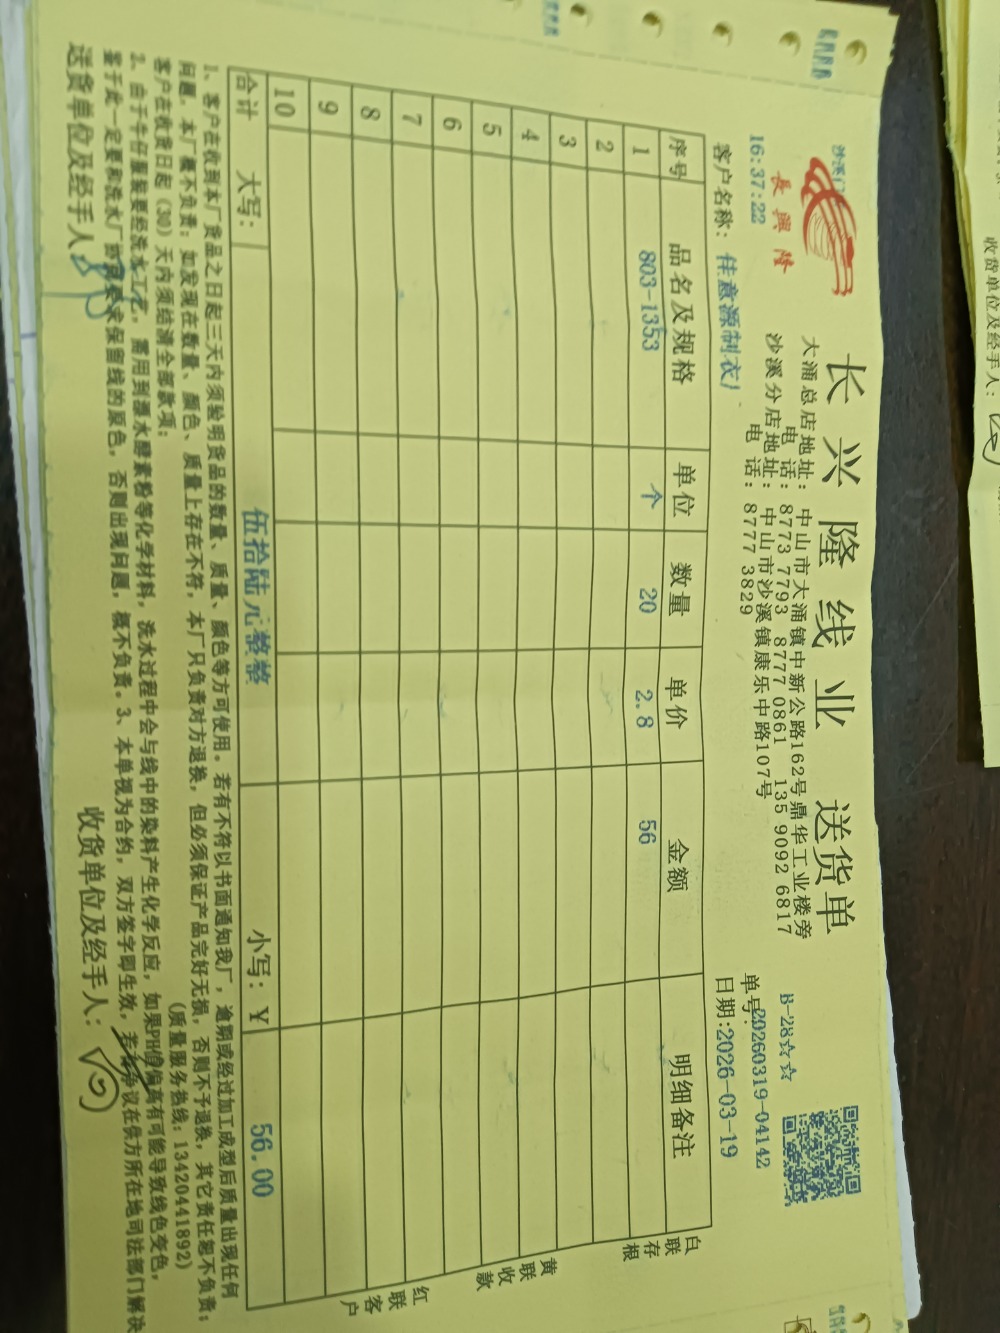 沙溪门
長興隆
16:37:22
长兴隆线业 送货单
大涌总店地址：中山市大涌镇中新公路162号鼎华工业楼旁
电 话：8773 7793 8777 0861 135 9092 6817
沙溪分店地址：中山市沙溪镇康乐中路107号
电 话：8777 3829
B-28☆☆
单号:20260319-04142
客户名称：佳意源制衣厂 日期:2026-03-19
序号 品名及规格 单位 数量 单价 金额 明细备注
1 803-1353 个 20 2.8 56
2
3
4
5
6
7
8
9
10
合计 大写： 伍拾陆元整整 小写：￥ 56.00
白联存根
黄联收款
红联客户
1、客户在收到本厂货品之日起三天内须验明货品的数量、质量、颜色等方可使用。若有不符以书面通知我厂，逾期或经过加工成型后质量出现任何
问题，本厂概不负责；如发现在数量、颜色、质量上存在不符，本厂只负责对方退换，但必须保证产品完好无损，否则不予退换，其它责任恕不负责；
客户在收货日起（30）天内须结清全部款项； (质量服务热线：13420441892)
2、由于牛仔服装要经洗水工艺，需用到漂水酵素粉等化学材料，洗水过程中会与线中的染料产生化学反应，如果PH值偏高有可能导致线色变色，
鉴于此一定要和洗水厂协调要求保留线的原色，否则出现问题，概不负责。3、本单视为合约，双方签字即生效，若有争议在供方所在地司法部门解决
送货单位及经手人： 收货单位及经手人：
收货单位及经手人：